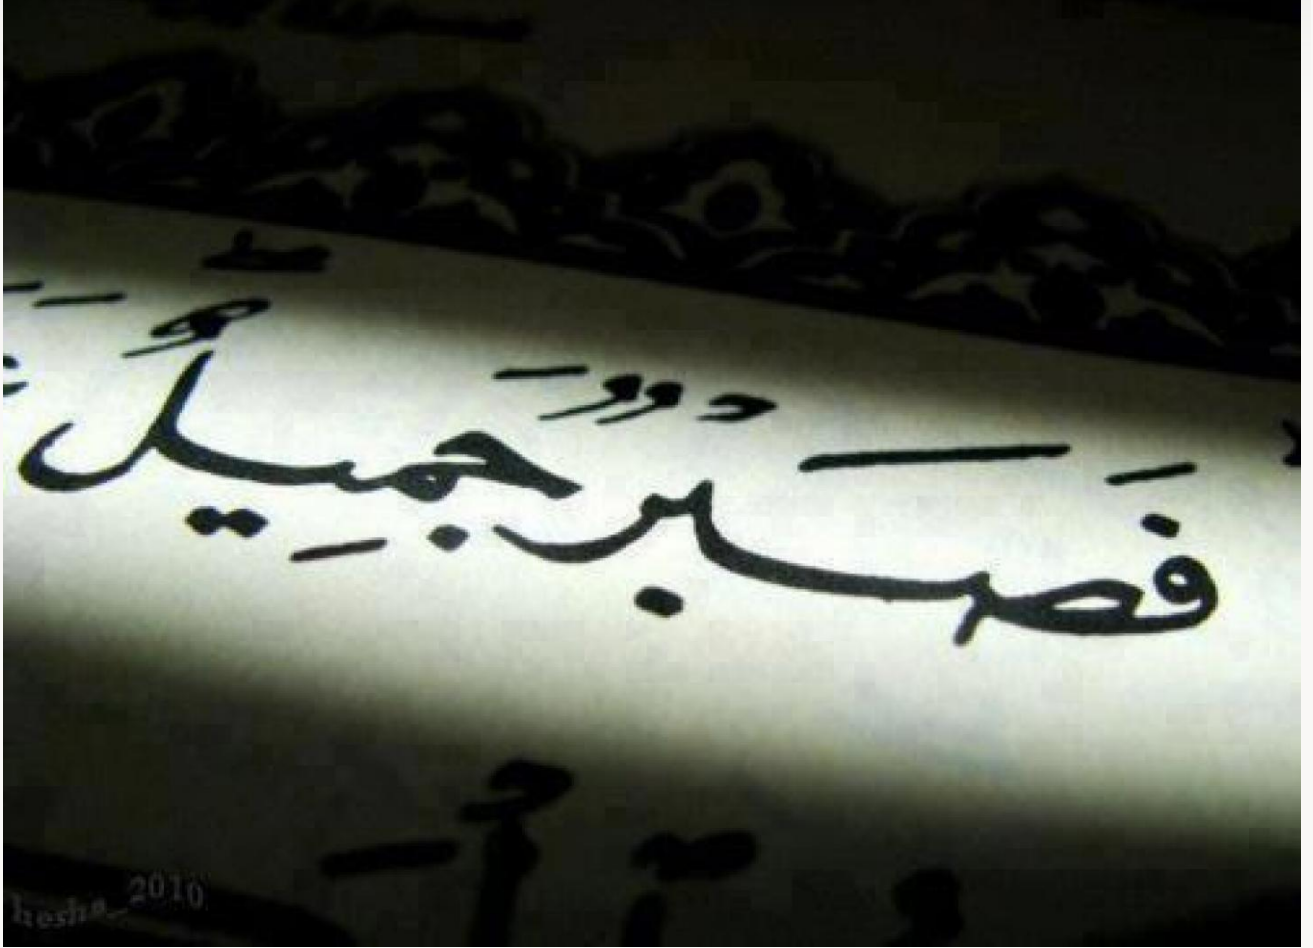 فَصَبْرٌ جَمِيلٌ ۖ
hesho_2010